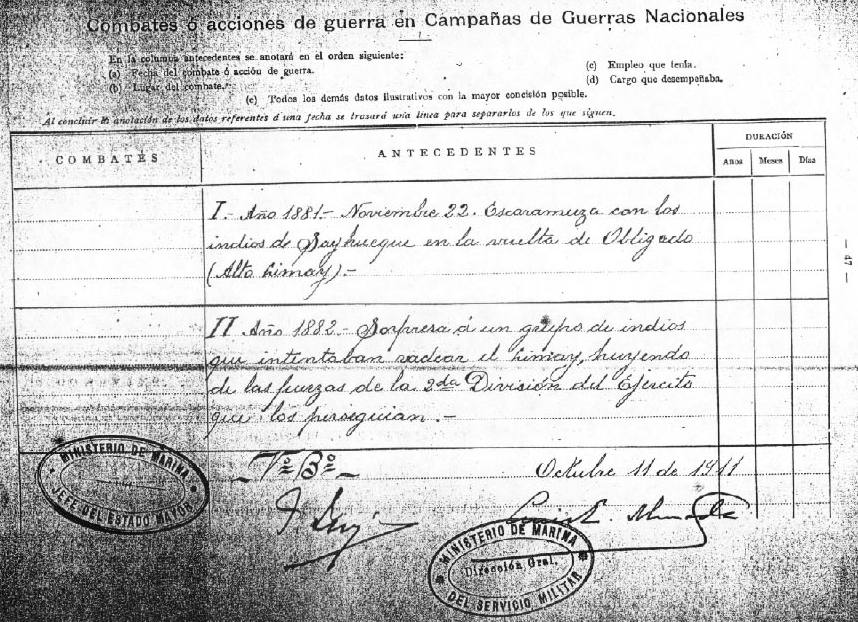 Combates ó acciones de guerra en Campañas de Guerras Nacionales
En la columna antecedentes se anotará en el orden siguiente:
(a) Fecha del combate ó acción de guerra.
(b) Lugar del combate.
(c) Empleo que tenía.
(d) Cargo que desempeñaba.
(e) Todos los demás datos ilustrativos con la mayor concisión posible.
Al concluir la anotación de los datos referentes á una fecha se trazará una línea para separarlos de los que siguen.
COMBATES
ANTECEDENTES
DURACIÓN
Años Meses Días
I.- Año 1881.- Noviembre 22. Escaramuza con los
indios de Sayhueque en la vuelta de Obligado
(Alto Limay).-
II Año 1882.- Sorpresa á un grupo de indios
que intentaban vadear el Limay, huyendo
de las fuerzas de la 2da División del Ejército
que los perseguian.-
- Vº Bº -
Octubre 11 de 1911
MINISTERIO DE MARINA
JEFE DEL ESTADO MAYOR
MINISTERIO DE MARINA
Dirección Gral.
DEL SERVICIO MILITAR
— 47 —